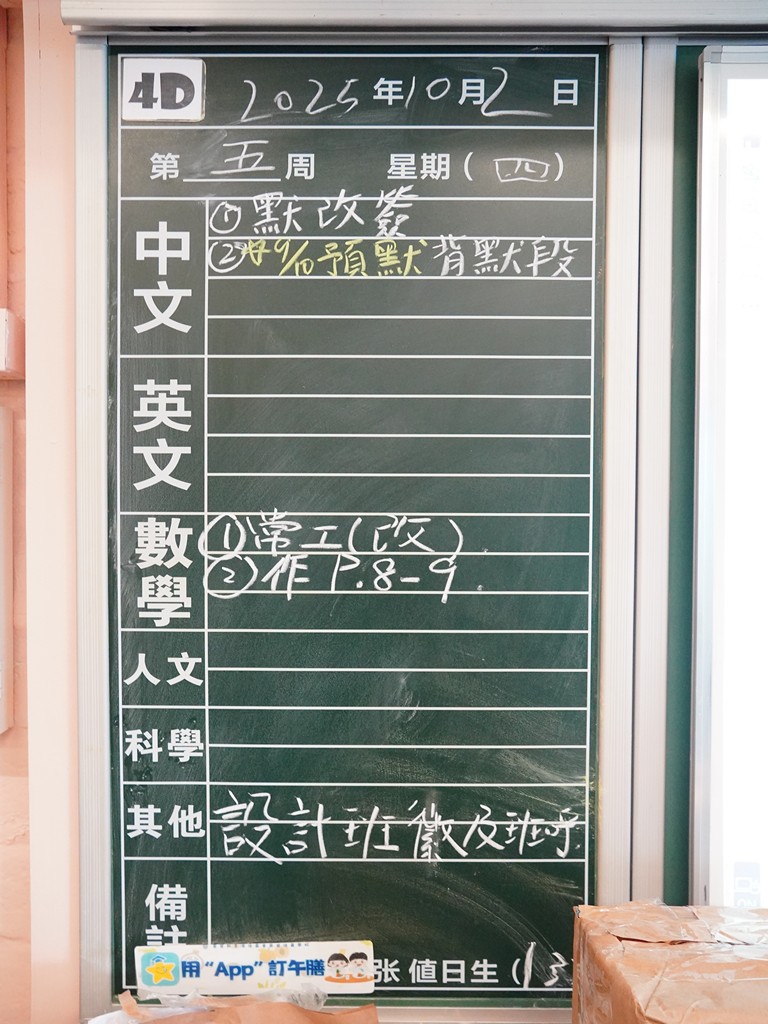 4D 2025年10月2日
第五周 星期(四)
中文
①默改簽
②9/10預默 背默段
英文
數學
①常工(改)
②作 P.8-9
人文
科學
其他
設計班徽及班呼
備註
用“App”訂午膳
张 值日生(13